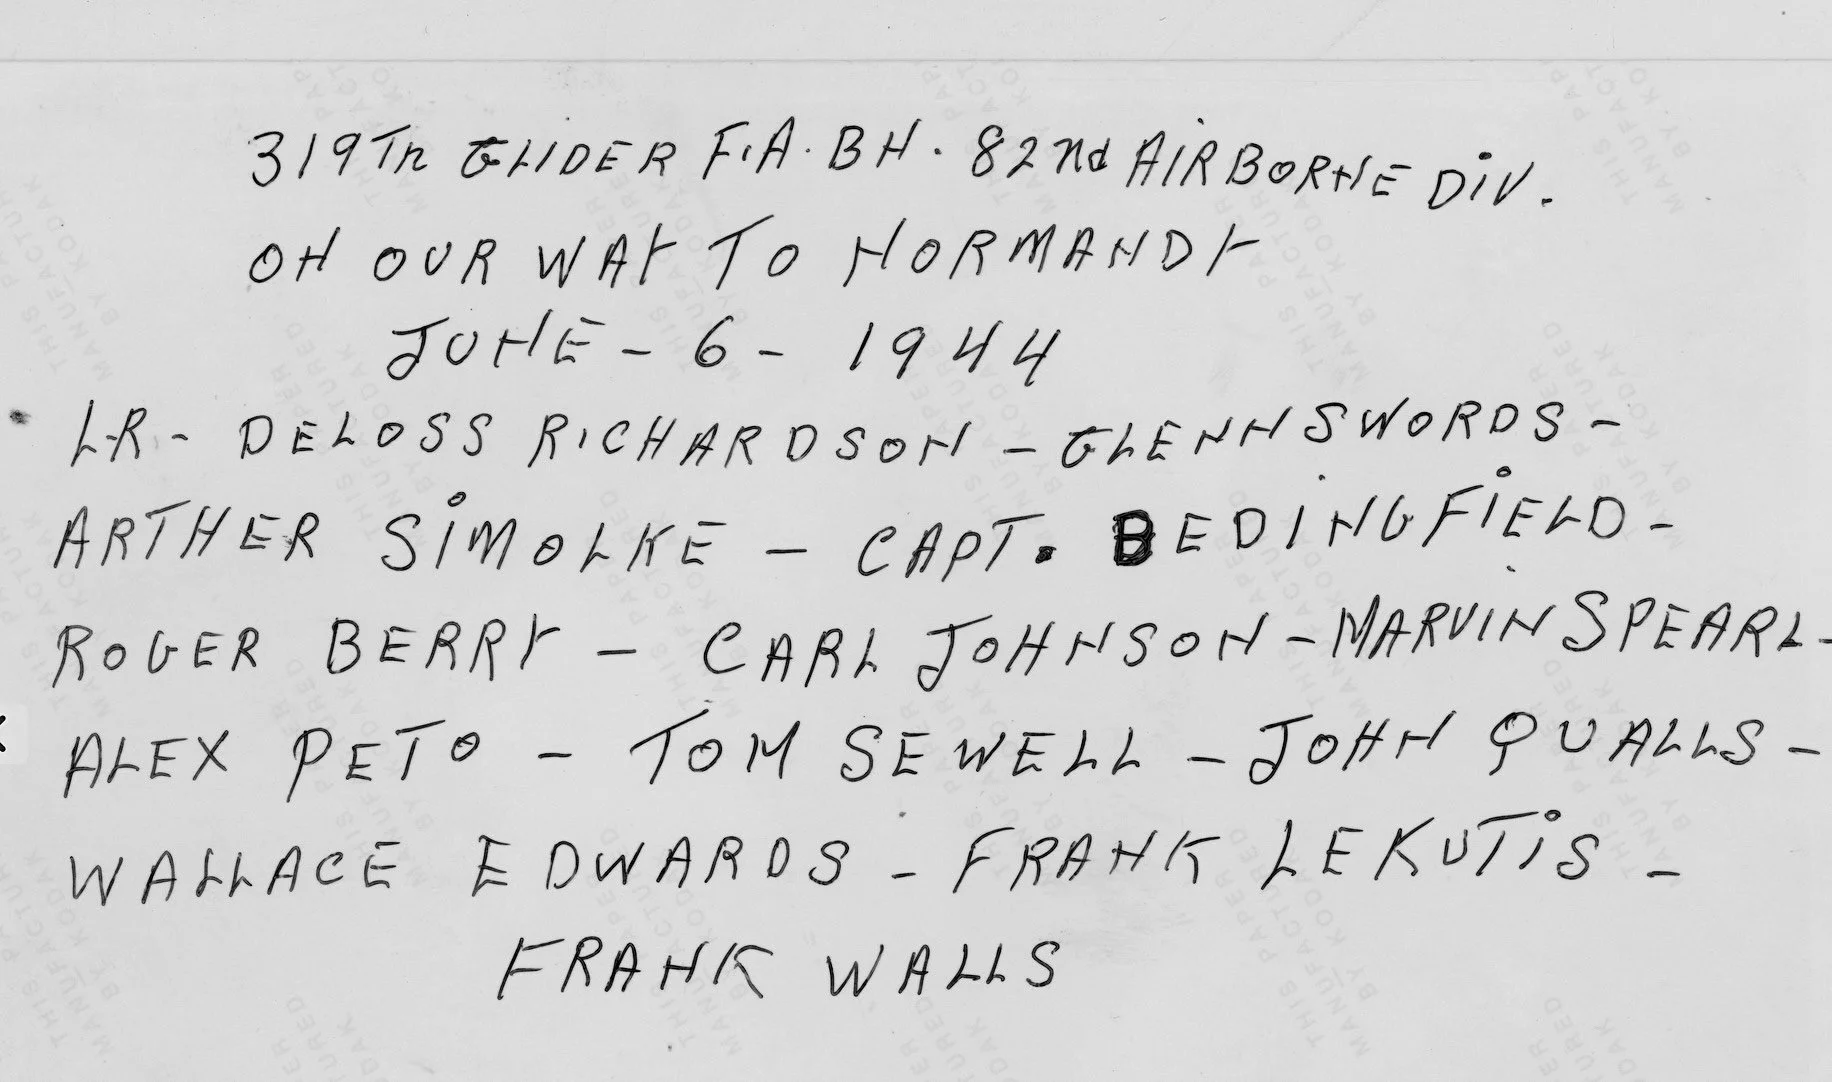 319TH GLIDER F.A. BN. 82nd AIRBORNE DIV.
ON OUR WAY TO NORMANDY
JUNE - 6 - 1944
L-R - DELOSS RICHARDSON - GLENN SWORDS -
ARTHER SIMOLKE - CAPT. BEDINGFIELD -
ROGER BERRY - CARL JOHNSON - MARVIN SPEARL -
ALEX PETO - TOM SEWELL - JOHN QUALLS -
WALLACE EDWARDS - FRANK LEKUTIS -
FRANK WALLS
THIS PAPER
MANUFACTURED
BY KODAK